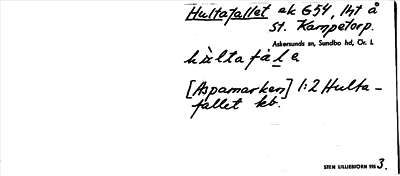 Hultafallet ek 654, lht å
St. Kampetorp.
Askersunds sn, Sundbo hd, Ör. l.
hùltafàlẹ
[Aspamarken] 1:2 Hulta-
fallet kb.
STEN LILLIEBJÖRN 1953.